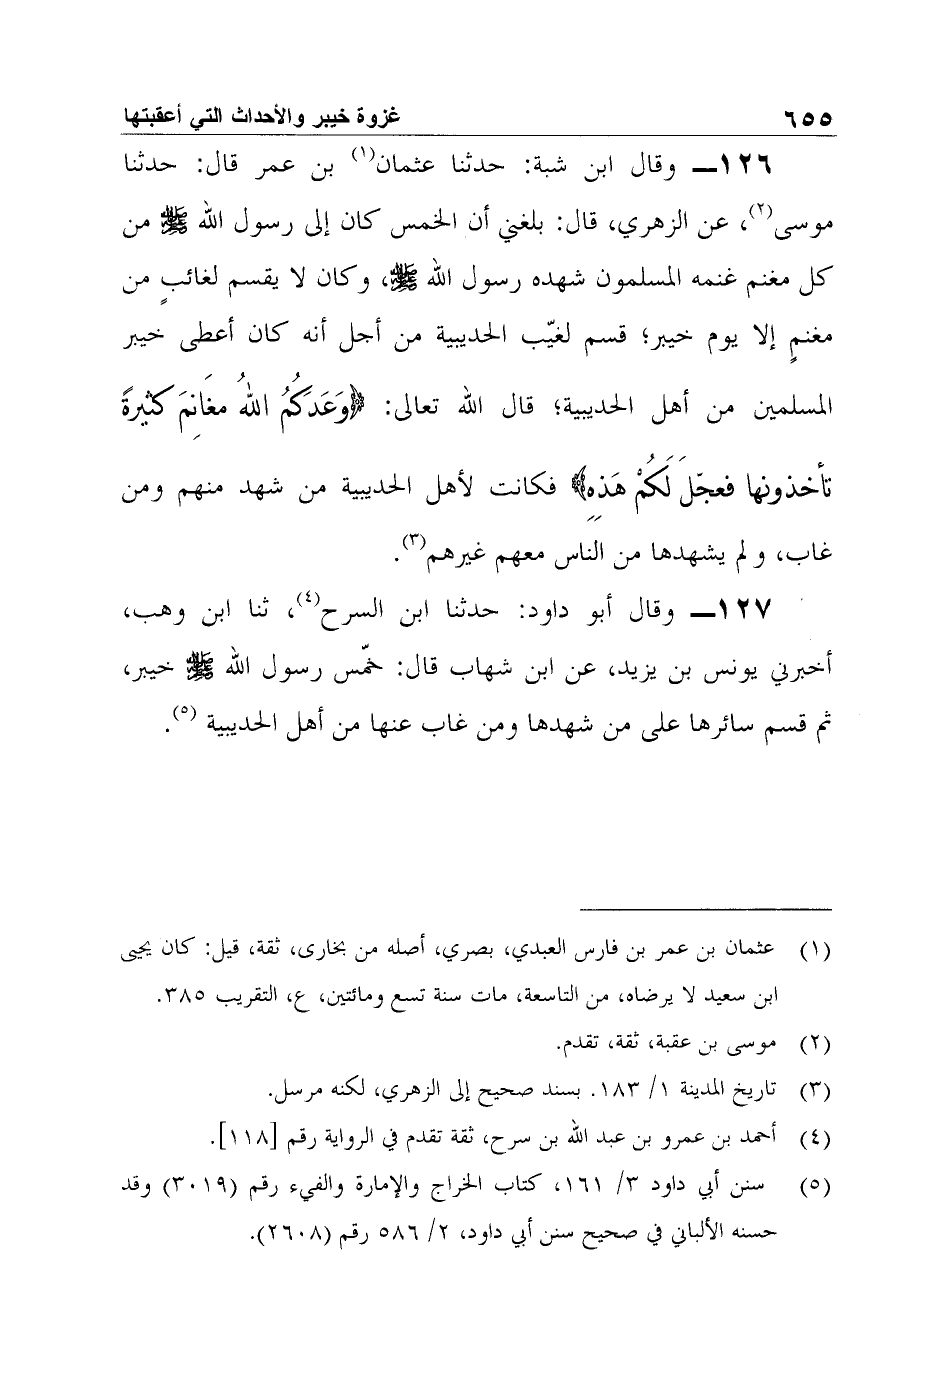 ٦٥٥ غزوة خيبر والأحداث التي أعقبتها
١٢٦ــ وقال ابن شبة: حدثنا عثمان(١) بن عمر قال: حدثنا
موسى(٢)، عن الزهري، قال: بلغني أن الخمس كان إلى رسول الله ﷺ من
كل مغنم غنمه المسلمون شهده رسول الله ﷺ، وكان لا يقسم لغائبٍ من
مغنمٍ إلا يوم خيبر؛ قسم لغيّب الحديبية من أجل أنه كان أعطى خيبر
المسلمين من أهل الحديبية؛ قال الله تعالى: ﴿وَعَدَكُمُ اللهُ مَغَانِمَ كَثيرةً
تأخذونها فعجّلَ لَكُمْ هَذِهِ﴾ فكانت لأهل الحديبية من شهد منهم ومن
غاب، ولم يشهدها من الناس معهم غيرهم(٣).
١٢٧ــ وقال أبو داود: حدثنا ابن السرح(٤)، ثنا ابن وهب،
أخبرني يونس بن يزيد، عن ابن شهاب قال: خمّس رسول الله ﷺ خيبر،
ثم قسم سائرها على من شهدها ومن غاب عنها من أهل الحديبية (٥).
(١) عثمان بن عمر بن فارس العبدي، بصري، أصله من بخارى، ثقة، قيل: كان يحيى
ابن سعيد لا يرضاه، من التاسعة، مات سنة تسع ومائتين، ع، التقريب ٣٨٥.
(٢) موسى بن عقبة، ثقة، تقدم.
(٣) تاريخ المدينة ١/ ١٨٣. بسند صحيح إلى الزهري، لكنه مرسل.
(٤) أحمد بن عمرو بن عبد الله بن سرح، ثقة تقدم في الرواية رقم [١١٨].
(٥) سنن أبي داود ٣/ ١٦١، كتاب الخراج والإمارة والفيء رقم (٣٠١٩) وقد
حسنه الألباني في صحيح سنن أبي داود، ٢/ ٥٨٦ رقم (٢٦٠٨).